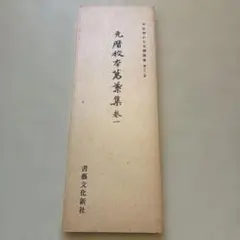 元暦校本萬葉集 巻一
書藝文化新社